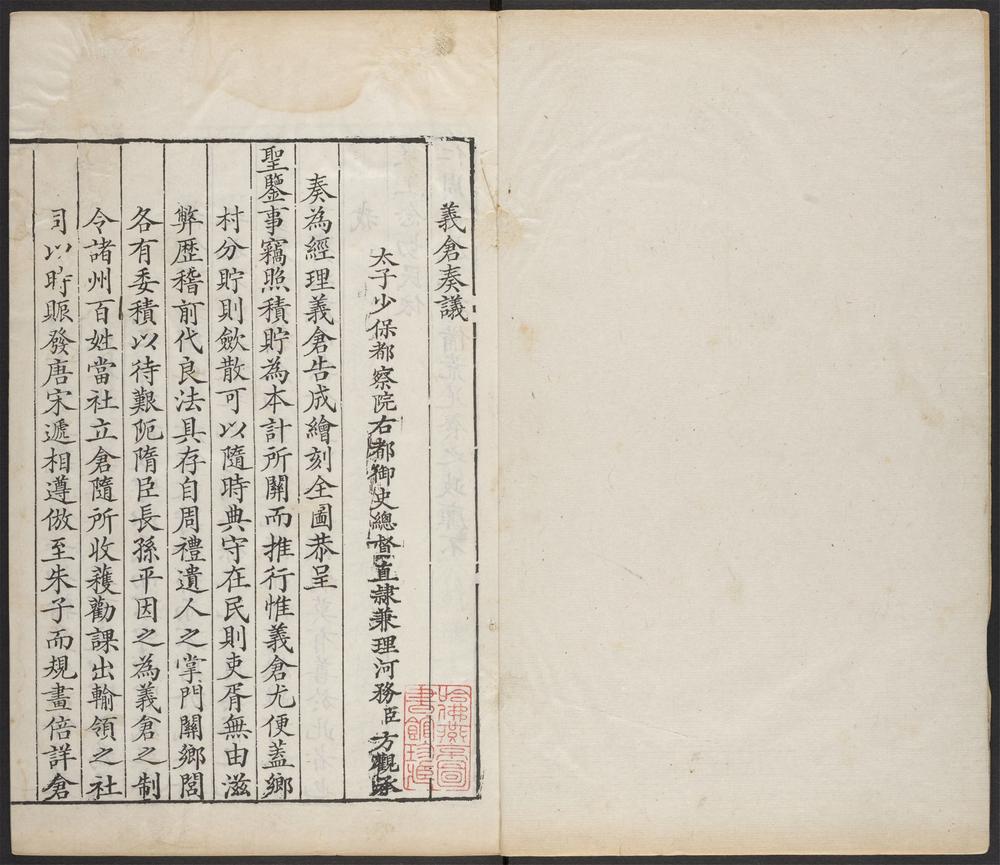 義倉奏議
太子少保都察院右都御史總督直隷兼理河務臣方觀承
奏為經理義倉告成繪刻全圖恭呈
聖鑒事竊照積貯為本計所關而推行惟義倉尤便蓋鄉
村分貯則歛散可以隨時典守在民則吏胥無由滋
弊歷稽前代良法具存自周禮遺人之掌門關鄉閭
各有委積以待艱阨隋臣長孫平因之為義倉之制
令諸州百姓當社立倉隨所收穫勸課出輸領之社
司以時賑發唐宋遞相遵倣至朱子而規畫倍詳倉
哈佛燕京圖
書館珍藏